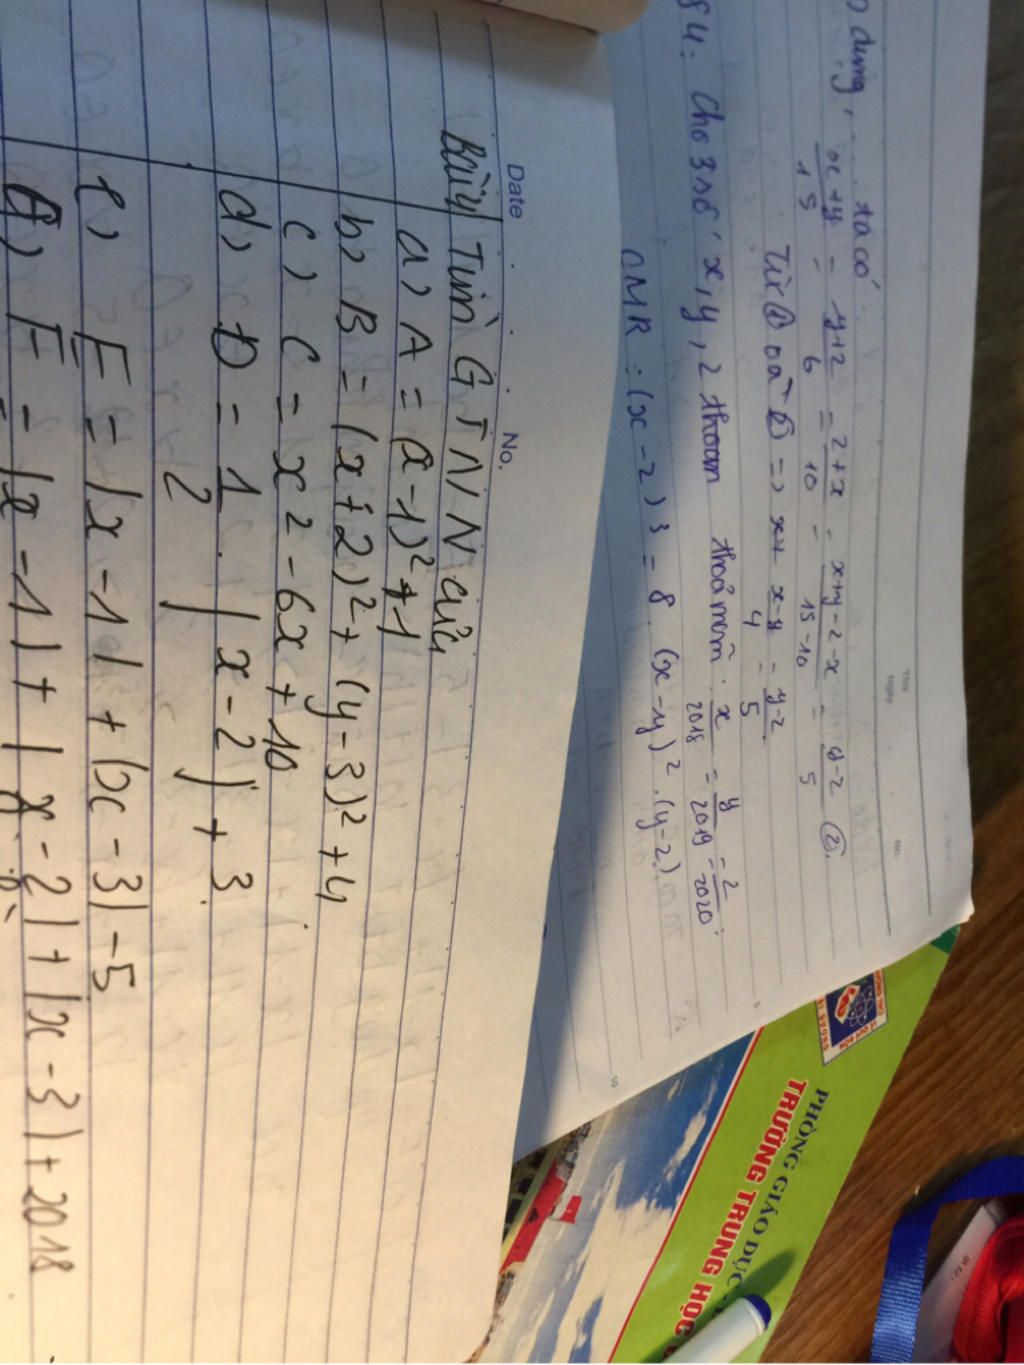 dụng, ... ta có
x+y/15 = y+z/6 = z+x/10 = x+y-z-x/15-10 = y-z/5 ②.
Từ ① và ② => x-y/4 = y-z/5
84. Cho 3 số x, y, z thỏa mãn. x/2018 = y/2019 = z/2020.
CMR: (x-z)3 = 8. (x-y)2.(y-z)
Date
No.
Bài 4 Tìm GTNN của
a) A = (x-1)2+1
b) B = (x+2)2+ (y-3)2+4
c) C = x2-6x+10
d) D = 1/2. |x-2| + 3.
e) E = |x-1| + |x-3| -5
F = |x-1| + |x-2| + |x-3| + 2018
PHÒNG GIÁO DỤC
TRƯỜNG TRUNG HỌC